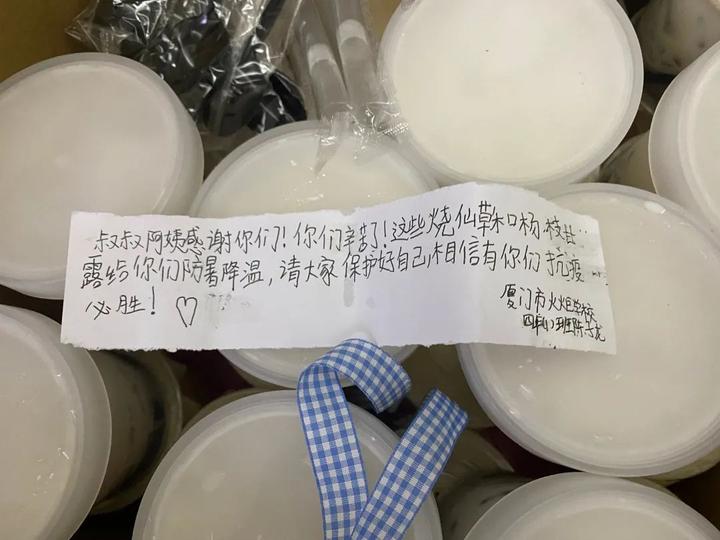 叔叔阿姨感谢你们！你们辛苦了！这些烧仙草和杨枝甘
露给你们防暑降温，请大家保护好自己，相信有你们 抗疫
必胜！♡
厦门市火炬学校
四年(1)班陈子龙